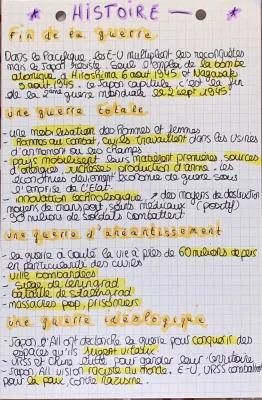 HISTOIRE
fin de la guerre
Dans le Pacifique, les E-U multiplient les reconquêtes
mais le Japon résiste. Seul l'emploi de la bombe
atomique à Hiroshima 6 août 1945 et Nagasaki
9 août 1945. Le Japon capitule, c'est la fin
de la 2ème guerre mondiale le 2 sept 1945.
une guerre totale
- une mobilisation des hommes et femmes
- Hommes au combat, civils travaillent dans les usines
d'armement ou les champs
pays mobilisent leurs matières premières sources
d'énergies, richesses, production d'arme. les
économies deviennent économie de guerre sous
l'emprise de l'Etat.
- innovation technologique des moyens de destruction
moyens de transport, soins médicaux (positif)
30 millions de soldats combattent
une guerre d'anéantissement
- la guerre a coûté la vie à plus de 60 millions de pers
en particularité des civils
- ville bombardées
- siège de Leningrad
- bataille de Stalingrad
- massacres pop, prisonniers
une guerre idéologique
- Japon, All ont déclaré la guerre pour conquérir des
espaces qu'ils jugent vitaux
- URSS et Chine lutte pour garder leur territoire
- Japon, All vision raciste du monde. E-U, URSS combattent
pour la paix, contre nazisme.